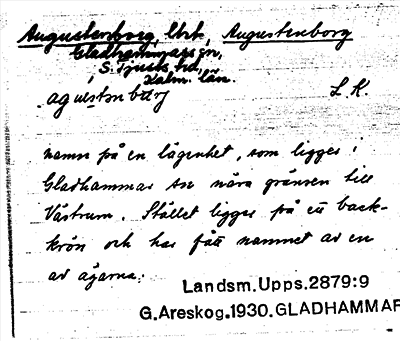 Augustenborg, lht, Augustenborg
Gladhammars sn,
S. Tjusts hd,
Kalm. län.
agustenbårj L.K.
namn på en lägenhet, som ligger i
Gladhammar sn nära gränsen till
Västrum. Stället ligger på ett back-
krön och har fått namnet av en
av ägarna.
Landsm.Upps.2879:9
G.Areskog.1930.GLADHAMMAR